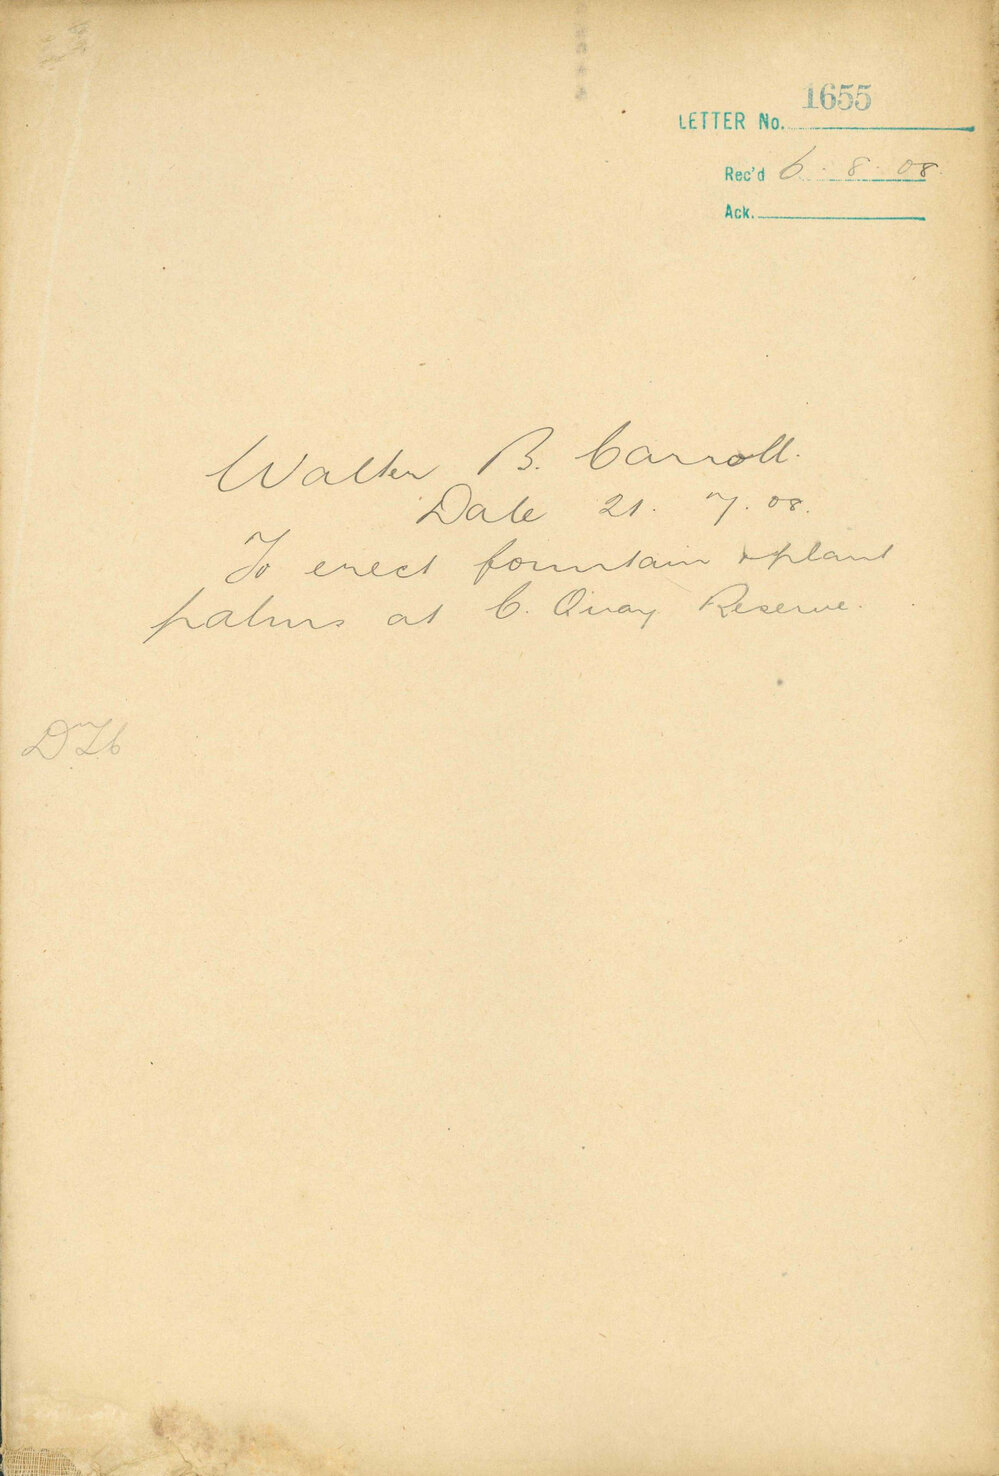 LETTER No. 1655
Rec'd 6.8.08.
Ack.
Walter B. Carroll.
Date 21.7.08.
To erect fountain & plant
palms at C. Quay Reserve.